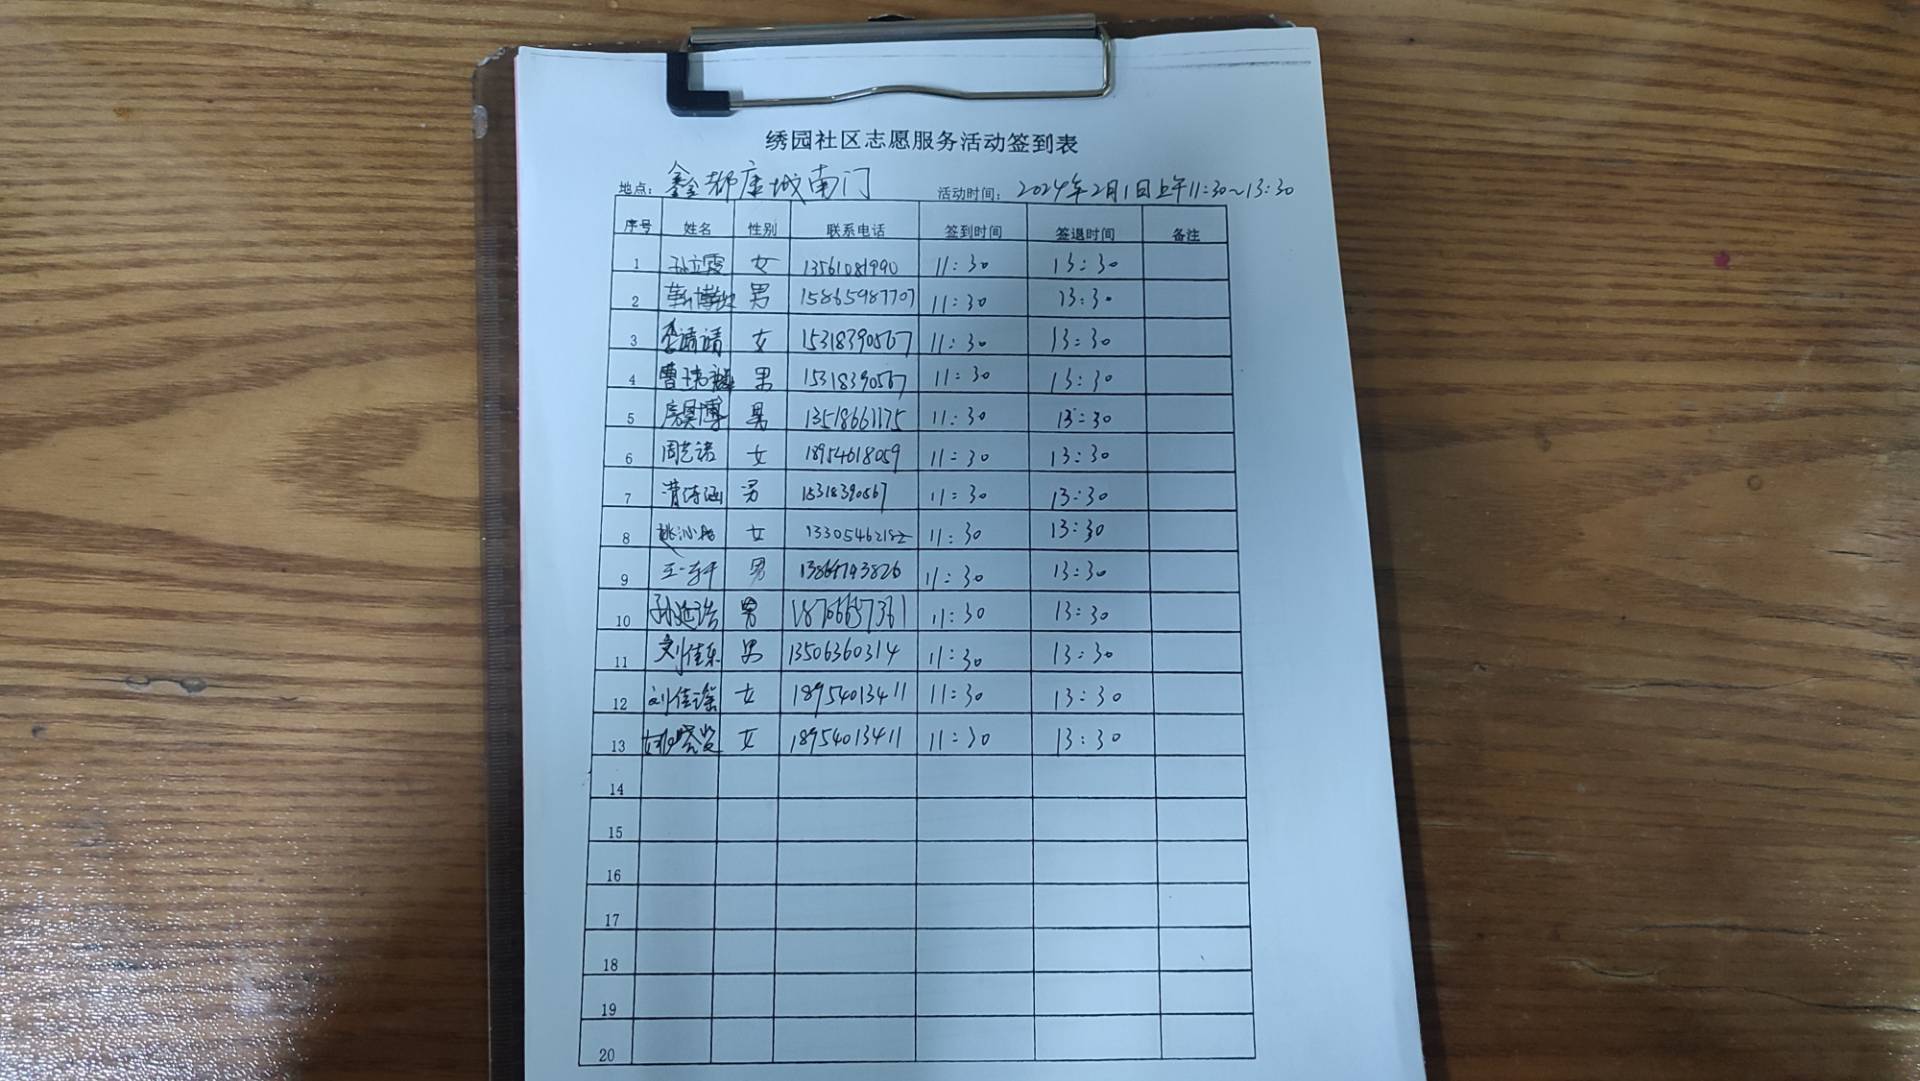 绣园社区志愿服务活动签到表
地点：鑫都康城南门 活动时间：2024年2月1日上午11:30~13:30
序号 姓名 性别 联系电话 签到时间 签退时间 备注
1 孙立霞 女 13561081990 11:30 13:30
2 男 15865987707 11:30 13:30
3 李靖靖 女 15318390567 11:30 13:30
4 男 15318390567 11:30 13:30
5 男 13518661175 11:30 13:30
6 周艺诺 女 18954618059 11:30 13:30
7 男 15318390567 11:30 13:30
8 女 13305462182 11:30 13:30
9 男 11:30 13:30
10 孙延浩 男 18766657361 11:30 13:30
11 刘佳乐 男 13506360314 11:30 13:30
12 刘佳瑶 女 18954013411 11:30 13:30
13 女 18954013411 11:30 13:30
14
15
16
17
18
19
20